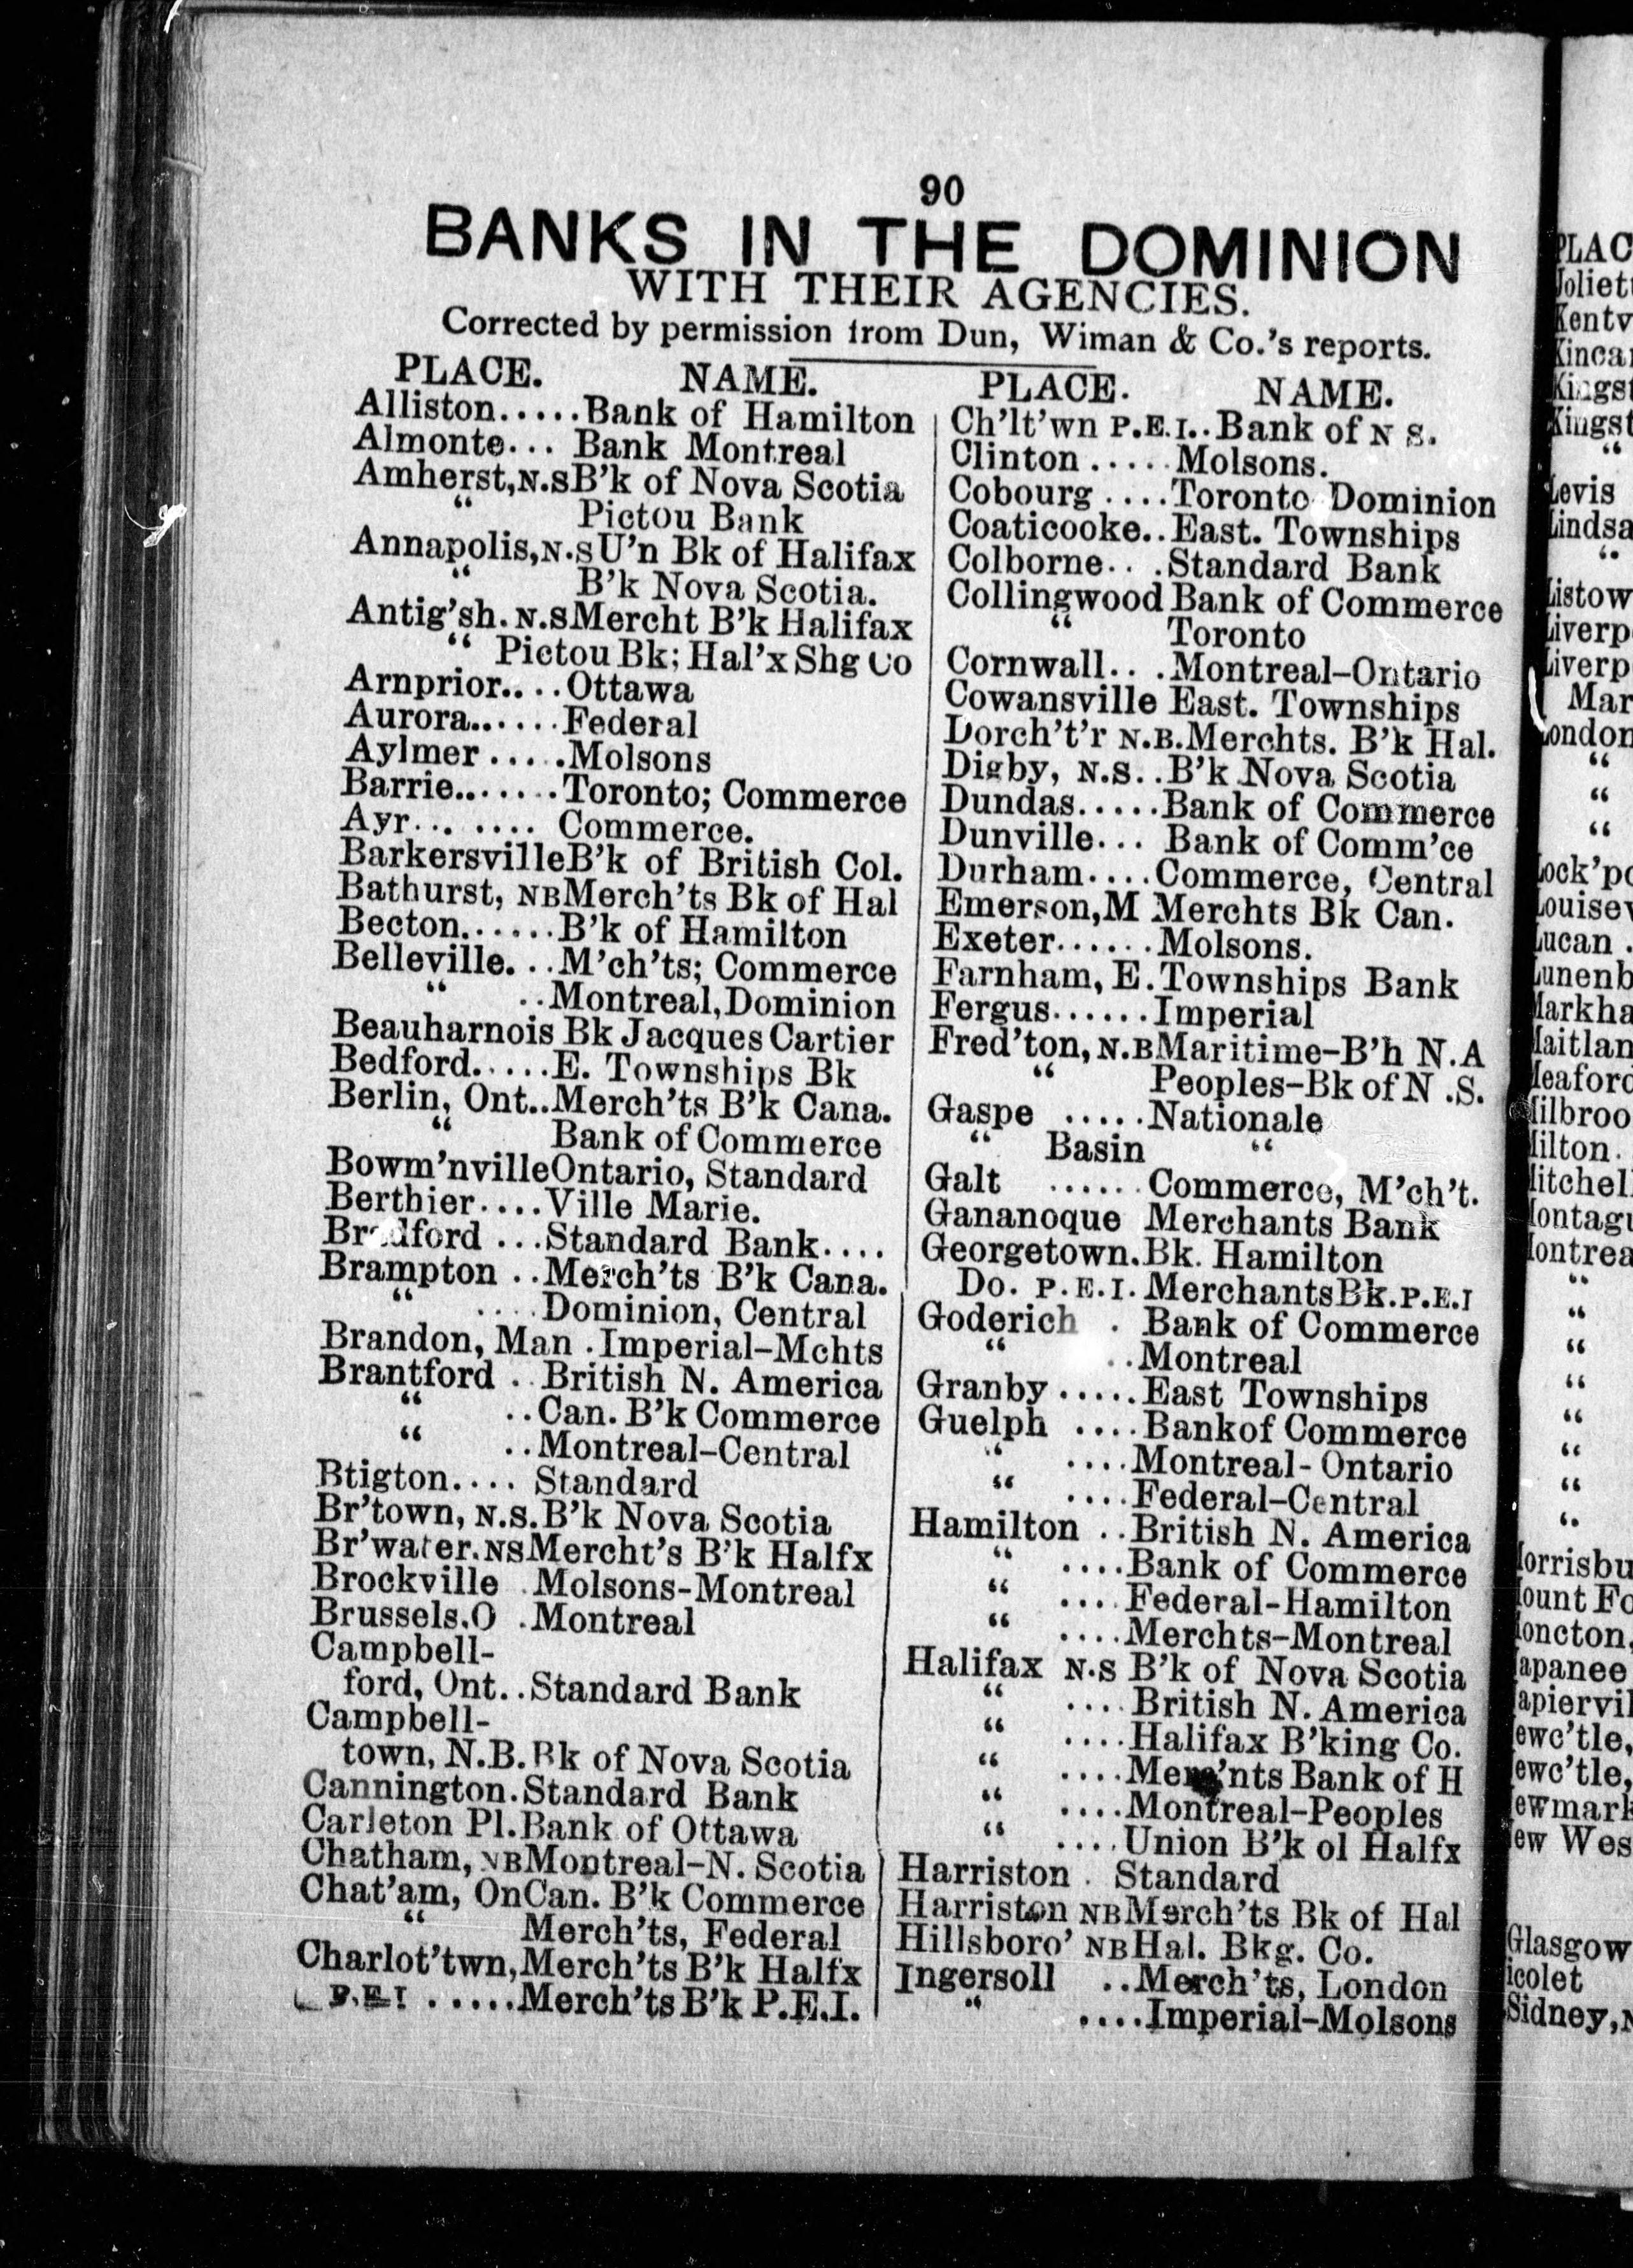 90
BANKS IN THE DOMINION
WITH THEIR AGENCIES.
Corrected by permission from Dun, Wiman & Co.'s reports.
PLACE. NAME.
Alliston.....Bank of Hamilton
Almonte... Bank Montreal
Amherst,N.SB'k of Nova Scotia
“ Pictou Bank
Annapolis,N.SU'n Bk of Halifax
“ B'k Nova Scotia.
Antig'sh.N.SMercht B'k Halifax
“ Pictou Bk; Hal'x Shg Co
Arnprior....Ottawa
Aurora......Federal
Aylmer.....Molsons
Barrie.......Toronto; Commerce
Ayr....... Commerce.
BarkersvilleB'k of British Col.
Bathurst, NBMerch'ts Bk of Hal
Becton......B'k of Hamilton
Belleville...M'ch'ts; Commerce
“ ..Montreal,Dominion
Beauharnois Bk Jacques Cartier
Bedford.....E. Townships Bk
Berlin, Ont..Merch'ts B'k Cana.
“ Bank of Commerce
Bowm'nvilleOntario, Standard
Berthier....Ville Marie.
Bradford ...Standard Bank....
Brampton ..Merch'ts B'k Cana.
“ ....Dominion, Central
Brandon, Man .Imperial-Mchts
Brantford ..British N. America
“ ..Can. B'k Commerce
“ ..Montreal-Central
Btigton.... Standard
Br'town, N.S.B'k Nova Scotia
Br'water.NSMercht's B'k Halfx
Brockville .Molsons-Montreal
Brussels.O .Montreal
Campbell-
ford, Ont..Standard Bank
Campbell-
town, N.B.Bk of Nova Scotia
Cannington.Standard Bank
Carleton Pl.Bank of Ottawa
Chatham, NBMontreal-N. Scotia
Chat'am, OnCan. B'k Commerce
“ Merch'ts, Federal
Charlot'twn,Merch'ts B'k Halfx
P.E.I .....Merch'ts B'k P.E.I.
PLACE. NAME.
Ch'lt'wn P.E.I..Bank of N S.
Clinton.....Molsons.
Cobourg....Toronto Dominion
Coaticooke..East. Townships
Colborne...Standard Bank
Collingwood Bank of Commerce
“ Toronto
Cornwall...Montreal-Ontario
Cowansville East. Townships
Dorch't'r N.B.Merchts. B'k Hal.
Digby, N.S..B'k Nova Scotia
Dundas.....Bank of Commerce
Dunville... Bank of Comm'ce
Durham....Commerce, Central
Emerson,M Merchts Bk Can.
Exeter......Molsons.
Farnham, E.Townships Bank
Fergus......Imperial
Fred'ton, N.BMaritime-B'h N.A
“ Peoples-Bk of N .S.
Gaspe .....Nationale
“ Basin “
Galt ......Commerce, M'ch't.
Gananoque Merchants Bank
Georgetown.Bk. Hamilton
Do. P.E.I.MerchantsBk.P.E.I
Goderich . Bank of Commerce
“ ..Montreal
Granby.....East Townships
Guelph ....Bankof Commerce
“ ....Montreal-Ontario
“ ....Federal-Central
Hamilton ..British N. America
“ ....Bank of Commerce
“ ....Federal-Hamilton
“ ....Merchts-Montreal
Halifax N.S B'k of Nova Scotia
“ ....British N. America
“ ....Halifax B'king Co.
“ ....Merc'nts Bank of H
“ ....Montreal-Peoples
“ ....Union B'k ol Halfx
Harriston . Standard
Harriston NBMerch'ts Bk of Hal
Hillsboro' NBHal. Bkg. Co.
Ingersoll ..Merch'ts, London
“ ....Imperial-Molsons